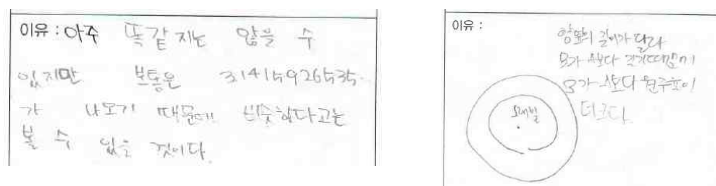 이유 : 아주 똑같지는 않을 수
있지만 보통은 31415926535..
가 나오기 때문에 비슷하다고는
볼 수 있을 것이다.
이유 :
길이가 달라
보다 크기때문에
보다 원주율이
더크다.